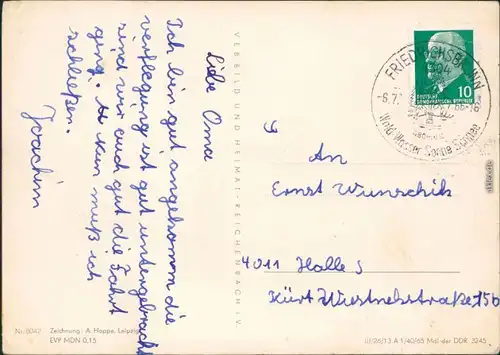 Liebe Oma
Ich bin gut angekommen die
verflegung ist gut untergebracht
sind wir auch gut die Fahrt
ging. Nun muß ich
schließen.
Joachim
VERBILD UND HEIMAT · REICHENBACH i. V.
FRIEDRICHSBRUNN
-6.7.
Wald Wasser Sonne
10
DEUTSCHE
DEMOKRATISCHE REPUBLIK
An
Ernst Wunschik
4011 Halle S
Kurt Wüstnebstraße 15b
Nr. 8042 Zeichnung: A. Hoppe, Leipzig
EVP MDN 0,15
III/26/13 A 1/40/65 MdI der DDR 3245